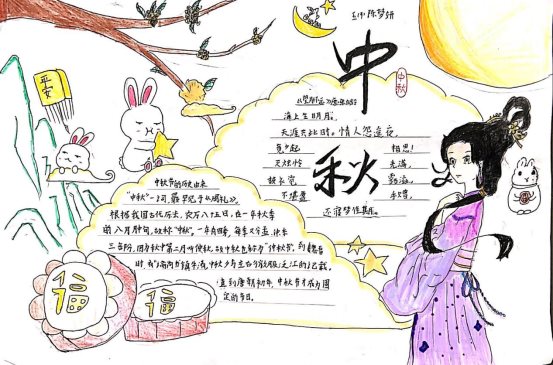 五(1) 陈梦妍
平安
中秋
中秋
海上生明月,
天涯共此时。情人怨遥夜,
竟夕起
相思!
灭烛怜
光满,
披衣觉
露滋。
不堪盈
手赠,
还寝梦佳期。
中秋节的历史由来
"中秋"一词,最早见于《周礼》。
根据我国古代历法,农历八月十五日,在一年秋季
的八月中旬,故称"中秋"。一年有四季,每季又分孟、仲、季
三部分,因为秋中第二月叫仲秋,故中秋也称为"仲秋节"。到魏晋
时,有"
直到唐朝初年,中秋节才成为固
定的节日。
福
福